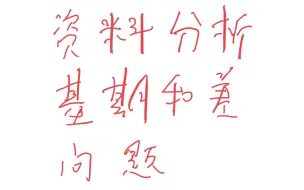 资料分析
基期和差
问题